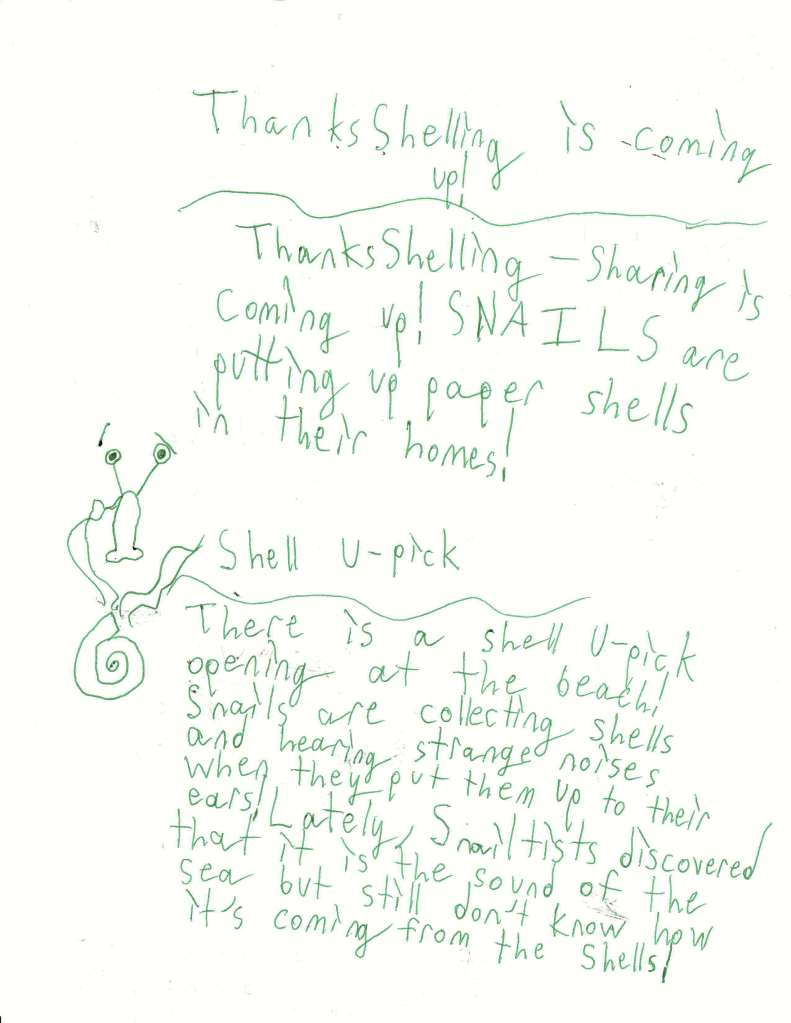 ThanksShelling is coming
up!
ThanksShelling - Sharing is
coming up! SNAILS are
putting up paper shells
in their homes!
Shell U-pick
There is a shell U-pick
opening at the beach!
Snails are collecting shells
and hearing strange noises
when they put them up to their
ears! Lately, Snailtists discovered
that it is the sound of the
sea but still don't know how
it's coming from the shells!